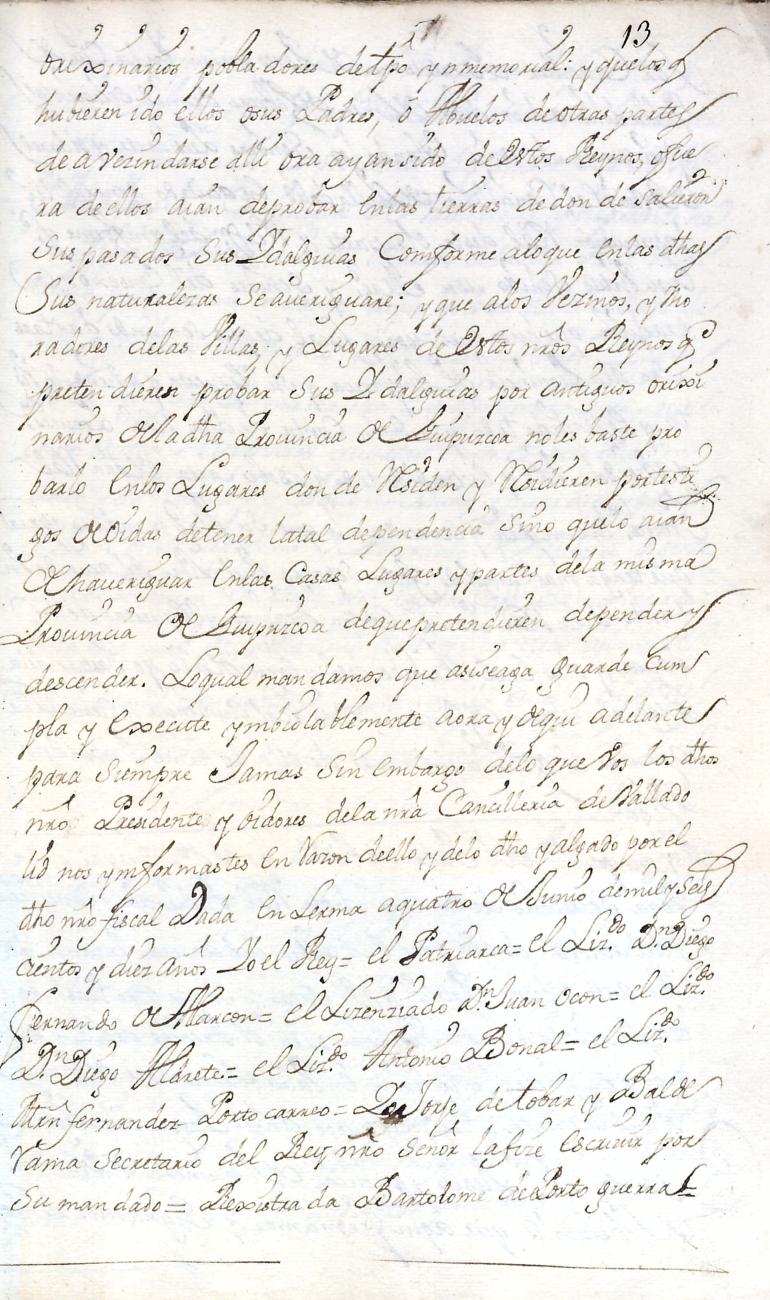 13
orixinarios pobladores de tpo ynmemorial: y que los q
hubieren ido ellos o sus Padres, ó Abuelos de otras partes
de avezindarse alli ora ayan sido de Estos Reynos, o fue
ra de ellos aian de probar En las tierras de don de salieron
sus pasados sus Ydalguias Comforme alo que en las dhas
sus naturalezas se averiguare; y que alos Vezinos, y Mo
radores delas Villas, y Lugares de Estos nros Reynos q
pretendieren probar sus Ydalguias por antiguos orixi
narios de la dha Provincia de Guipuzcoa no les baste pro
barlo En los Lugares don de Residen y Residieren por testi
gos de oidas de tener la tal dependencia sino que lo aian
de haveriguar en las Casas Lugares y partes dela misma
Provincia de Guipuzcoa de que pretendieren depender y
descender. Lo qual mandamos que asi se aga guarde cum
pla y Execute ymbiolablemente aora y de qui adelante
para siempre Jamas sin embargo delo que Vos los dhos
nro Presidente y oidores dela nra Cancilleria de Vallado
lid nos ymformastes En Razon de ello y delo dho y algado por el
dho nro fiscal Dada en Lerma a quatro de Junio de mil y seis
cientos y diez años Yo el Rey= el Patriarca= el Liz.do D.n Diego
fernando de Alarcon= el Lizenziado D.n Juan Ocon= el Liz.do
D.n Diego Alderete= el Liz.do Antonio Bonal= el Liz.do
Mrn fernandez Porto carreo= Yo Jorje de tobar y Balde
rama Secretario del Rey nro Señor la fize Escrivir por
Su mandado= Rexistrada Bartolome de Porto guerra=